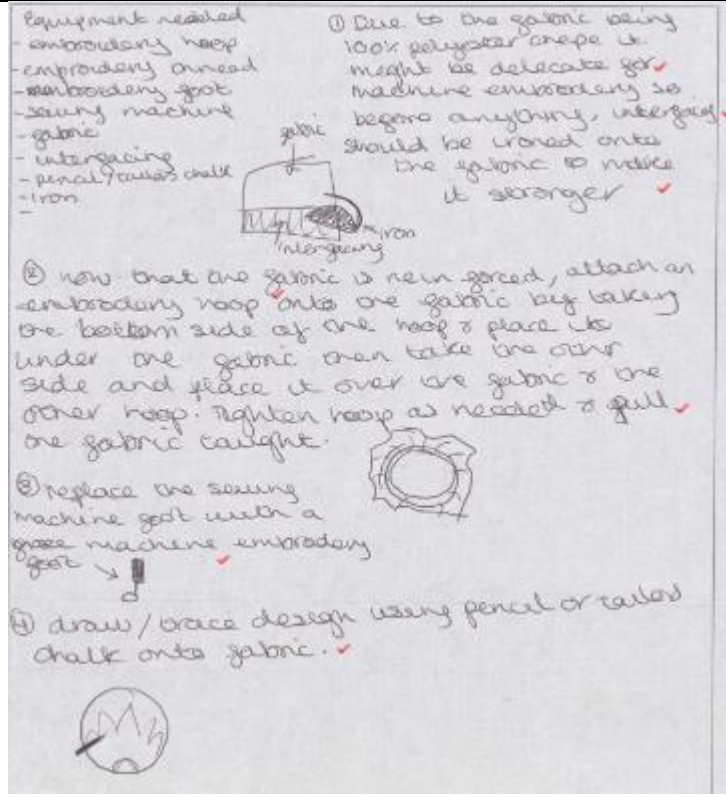 Equipment needed
- embroidery hoop
- embroidery thread
- embroidery foot
- sewing machine
- fabric
- interfacing
- pencil / tailors chalk
- iron
-
① Due to the fabric being
100% polyester crepe it
might be delecate for
machine embroidery so
before anything, interfacing
should be ironed onto
the fabric to make
it stronger
fabric
iron
interfacing
② now that the fabric is rein forced, attach an
embrodery hoop onto the fabric by taking
the bottom side of the hoop & place its
under the fabric then take the other
side and place it over the fabric & the
other hoop. Tighten hoop as needed & pull
the fabric taught.
③ replace the sewing
machine foot with a
machine embrodery
foot
④ draw / trace design using pencil or tailors
chalk onto fabric.